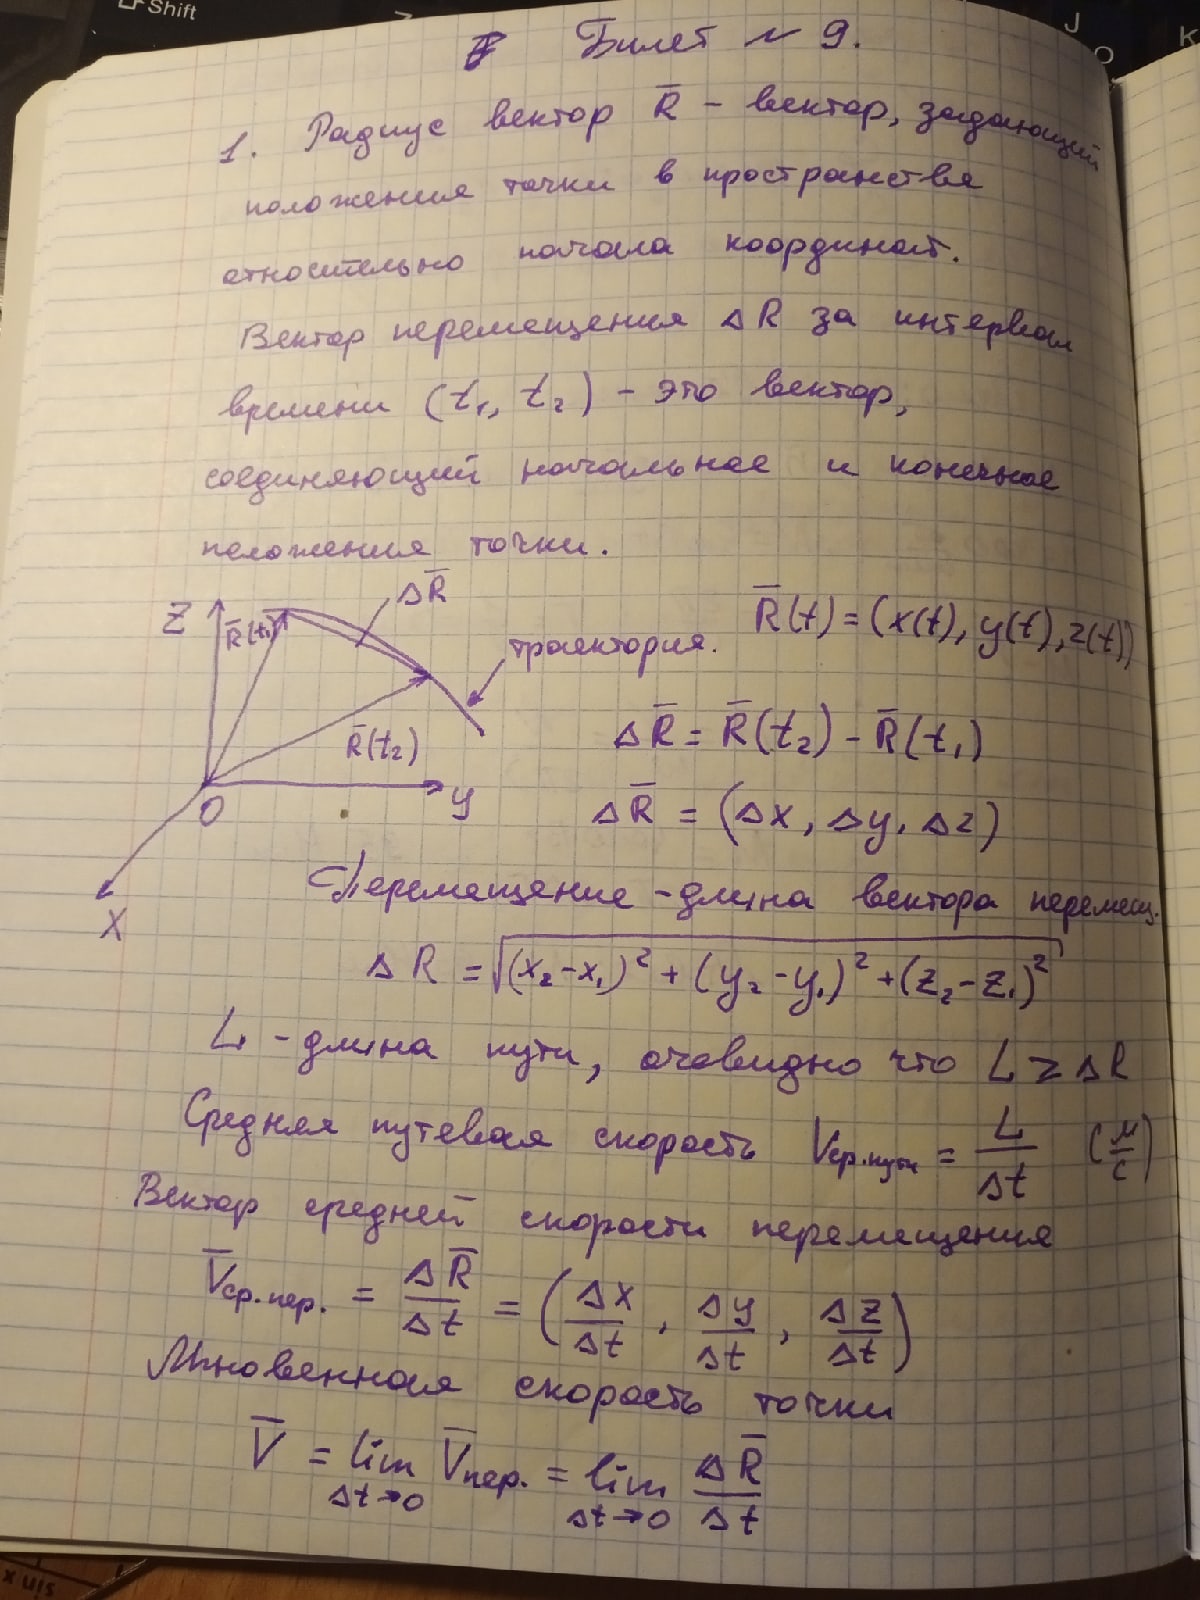 Shift
J
K
Билет № 9.
1. Радиус вектор R̅ – вектор, задающий
положения точки в пространстве
относительно начала координат.
Вектор перемещения ΔR за интервал
времени (t₁, t₂) – это вектор,
соединяющий начальное и конечное
положения точки.
Z
R̅(t₁)
ΔR̅
траектория.
R̅(t) = (x(t), y(t), z(t))
R̅(t₂)
ΔR̅ = R̅(t₂) - R̅(t₁)
O
y
X
ΔR̅ = (Δx, Δy, Δz)
Перемещение - длина вектора перемещ.
ΔR = √((x₂-x₁)² + (y₂-y₁)² + (z₂-z₁)²)
L - длина пути, очевидно что L ≥ ΔR
Средняя путевая скорость Vср.пути = L/Δt (м/с)
Вектор средней скорости перемещения
V̅ср.пер. = ΔR̅/Δt = (Δx/Δt, Δy/Δt, Δz/Δt)
Мгновенная скорость точки
V̅ = lim Δt→0 V̅пер. = lim Δt→0 ΔR̅/Δt
sin x